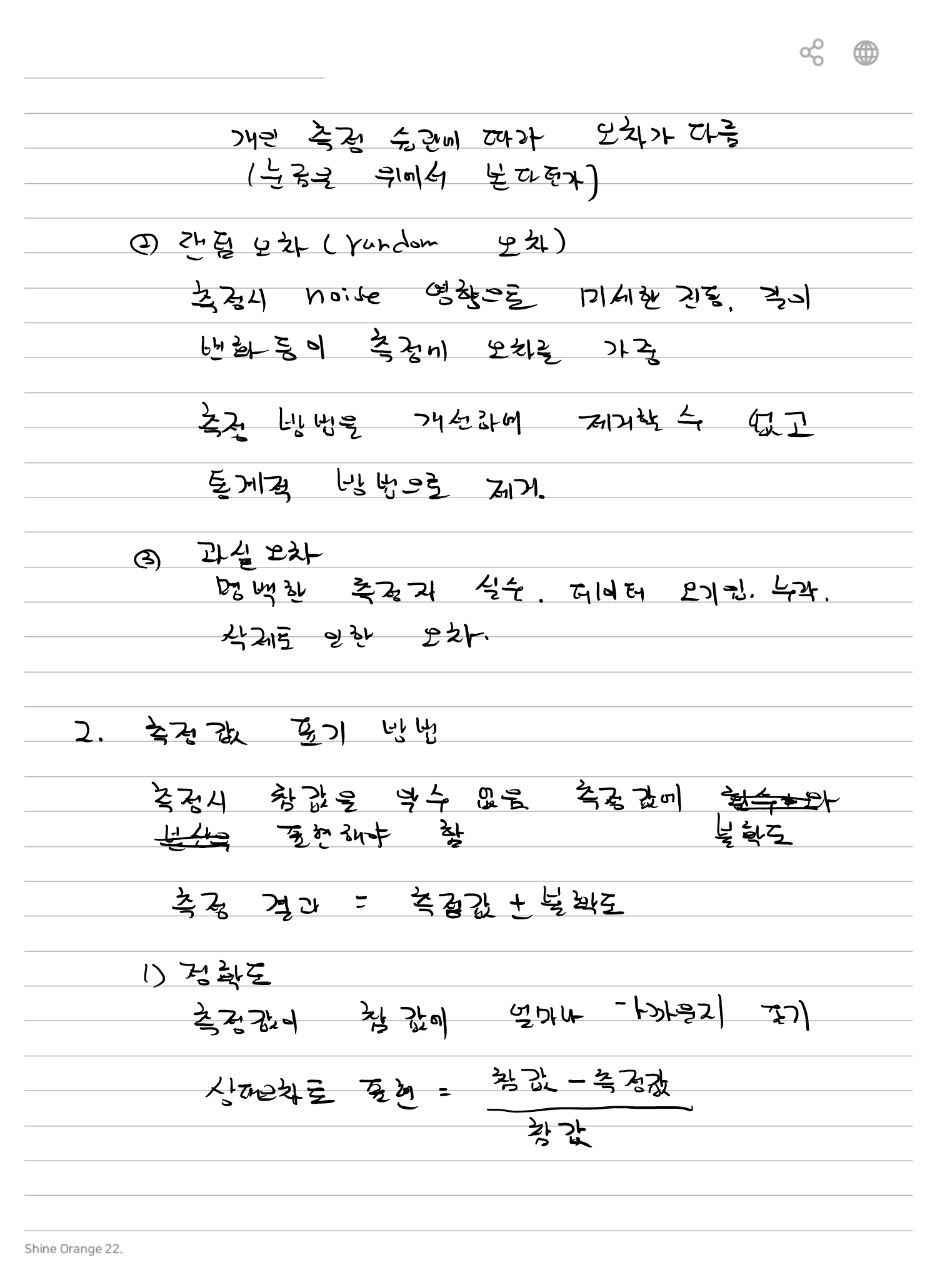 개인 측정 습관에 따라 오차가 다름
(눈금을 위에서 본다던가)
② 랜덤 오차 (random 오차)
측정시 noise 영향으로 미세한 진동, 길이
변화 등이 측정에 오차를 가중
측정 방법을 개선하여 제거할 수 없고
통계적 방법으로 제거.
③ 과실 오차
명백한 측정자 실수. 데이터 오기입. 누락.
삭제로 인한 오차.
2. 측정값 표기 방법
측정시 참값을 알 수 없음 측정값에
표현해야 함 불확도
측정 결과 = 측정값 ± 불확도
1) 정확도
측정값이 참값에 얼마나 가까운지 표기
상대오차로 표현 = 참값 - 측정값
참값
Shine Orange 22.